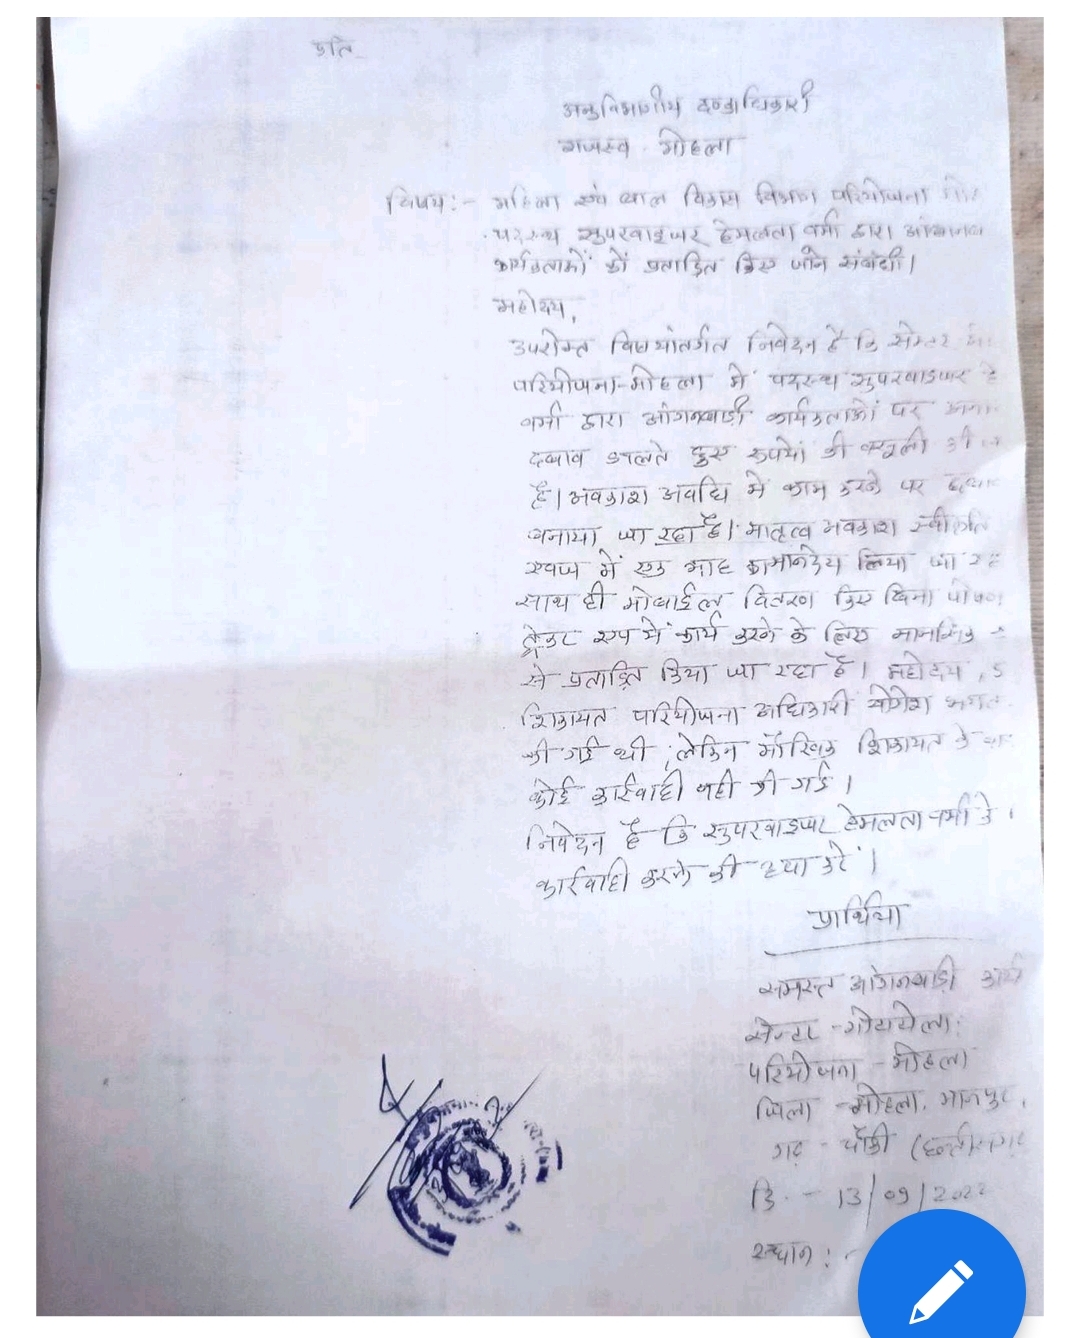 प्रति
अनुविभागीय दण्डाधिकारी
राजस्व मोहला
विषय:- महिला एवं बाल विकास विभाग परियोजना
पदस्थ सुपरवाइजर हेमलता वर्मी द्वारा
कार्यकर्ताओं को प्रताड़ित किए जाने संबंधी।
महोदय,
उपरोक्त विषयांतर्गत निवेदन है कि सेक्टर
परियोजना-मोहला में पदस्थ सुपरवाइजर
वर्मी द्वारा आंगनबाड़ी कार्यकर्ताओं पर
दबाव डालते हुए रुपयों की वसूली की
है। अवकाश अवधि में काम करने पर
बनाया जा रहा है। मातृत्व अवकाश स्वीकृति
एवज में एक माह का मानदेय लिया जा
साथ ही मोबाईल वितरण किए बिना पोषण
ट्रेकर एप में कार्य करने के लिए मानसिक
से प्रताड़ित किया जा रहा है। महोदय,
शिकायत परियोजना अधिकारी योगेश भगत
की गई थी, लेकिन मौखिक शिकायत के
कोई कार्रवाही नहीं की गई।
निवेदन है कि सुपरवाइजर हेमलता वर्मी के
कार्रवाही करने की दया करें।
प्रार्थिया
समस्त आंगनबाड़ी
सेक्टर -गोटाटोला
परियोजना - मोहला
जिला -मोहला, मानपुर,
गढ़ - चौकी (छत्तीसगढ़
दि. - 13/09/2022
स्थान: -